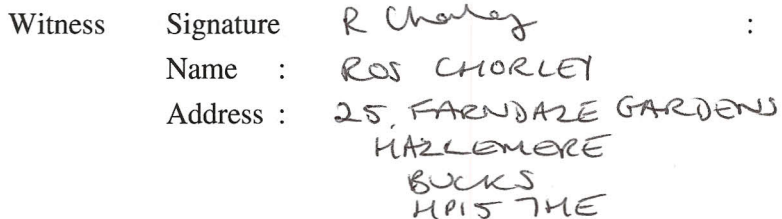 Witness Signature R Chorley :
Name : ROS CHORLEY
Address : 25, FARNDALE GARDENS
HAZLEMERE
BUCKS
HP15 7HE